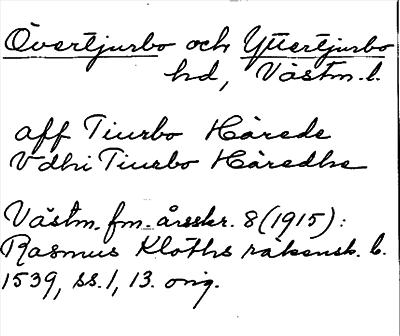 Övertjurbo och Yttertjurbo
hd, Västm. l.
aff Tiurbo Härede
Vdhi Tiurbo Häredhe
Västm. fm. årsskr. 8 (1915):
Rasmus Kloths räkensk. b.
1539, ss. 1, 13. orig.